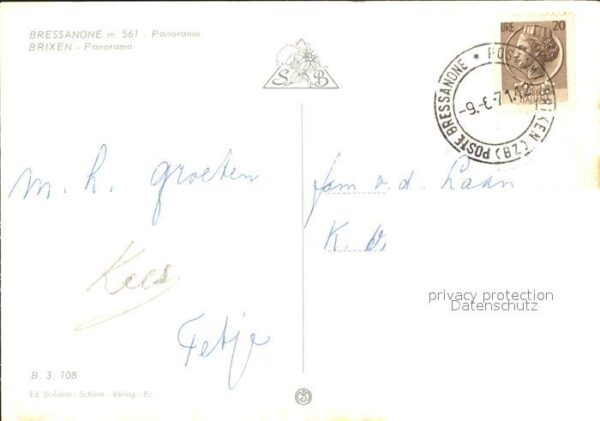 BRESSANONE m. 561 - Panorama
BRIXEN - Panorama
S B
LIRE 20
POSTE BRESSANONE * POSTAMT BRIXEN (BZ)
-9.-6.-71.12
m. h. groeten
Kees
Fetje
fam v.d. Laan
K. v.
privacy protection
Datenschutz
B. 3 108
Ed. Stefana - Schlern - Verlag - Bz.